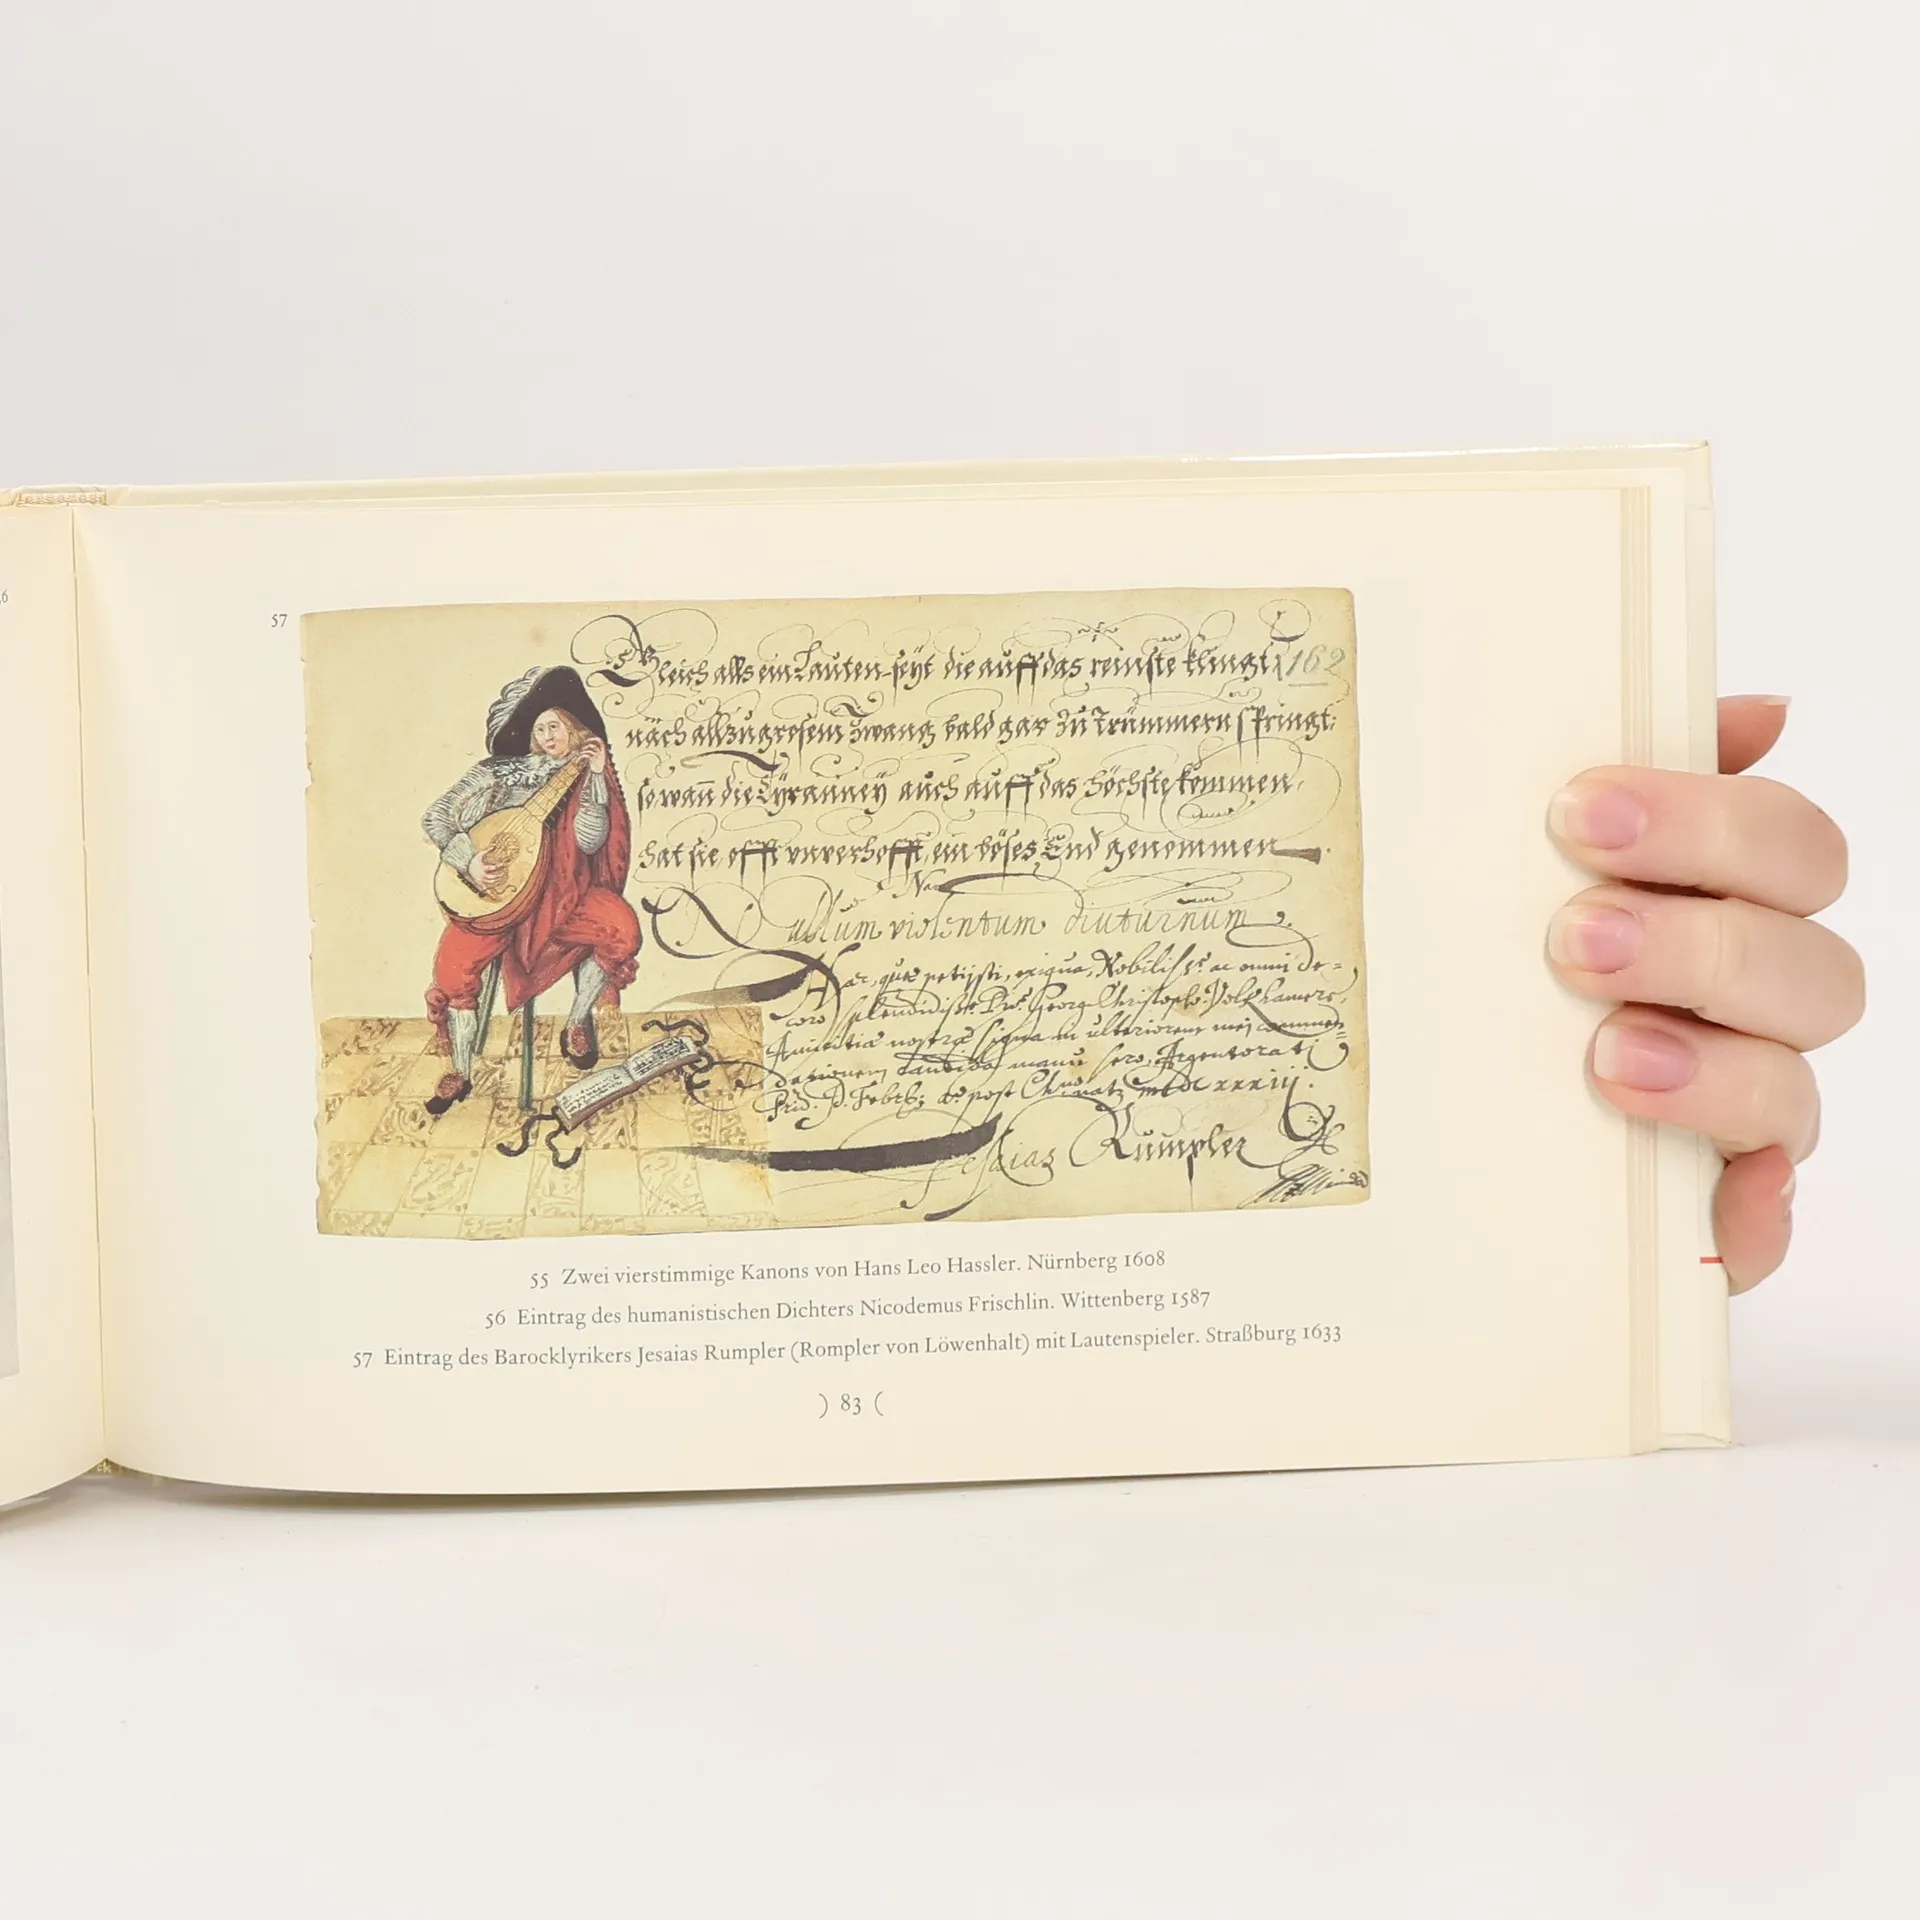 57
Gleich alls ein Lauten-seyt die auff das reinste klingt, 162
nach allzugrosem Zwang bald gar zu trümmern springt:
so wañ die Tyranney auch auff das höchste kommen,
hat sie offt vnverhofft, ein böses End genommen.
Nullum violentum diuturnum.
Haec, quae petijsti, exigua, Nobiliss.e ac omni de=
coro splendidiss.e Dñe. Georg Christoph. Volkhamere,
Amicitiae nostrae signa in ulteriorem mej commen=
dationem candida manu fero, Argentorati
Prid. D. Febr. aº post Chr. nat. MDCXXXIIJ.
Jesaias Rumpler
55 Zwei vierstimmige Kanons von Hans Leo Hassler. Nürnberg 1608
56 Eintrag des humanistischen Dichters Nicodemus Frischlin. Wittenberg 1587
57 Eintrag des Barocklyrikers Jesaias Rumpler (Rompler von Löwenhalt) mit Lautenspieler. Straßburg 1633
) 83 (